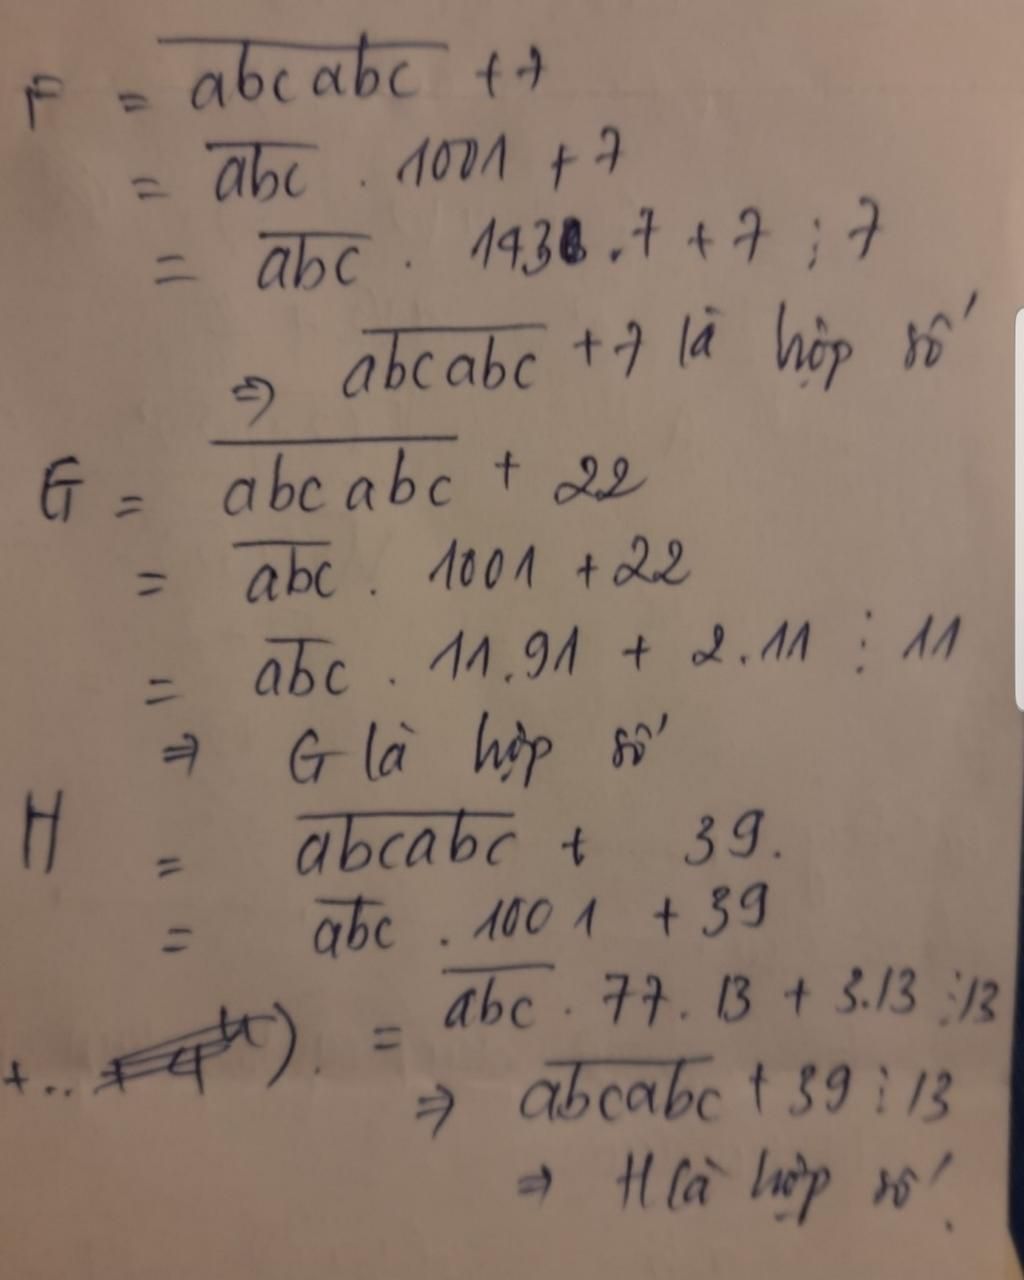 F = abcabc + 7
= abc . 1001 + 7
= abc . 143 . 7 + 7 ⋮ 7
⇒ abcabc + 7 là hộp số
G = abcabc + 22
= abc . 1001 + 22
= abc . 11 . 91 + 2 . 11 ⋮ 11
⇒ G là hợp số
H = abcabc + 39.
= abc . 1001 + 39
= abc . 77 . 13 + 3.13 ⋮ 13
+ .. ).
⇒ abcabc + 39 ⋮ 13
⇒ H là hợp số.